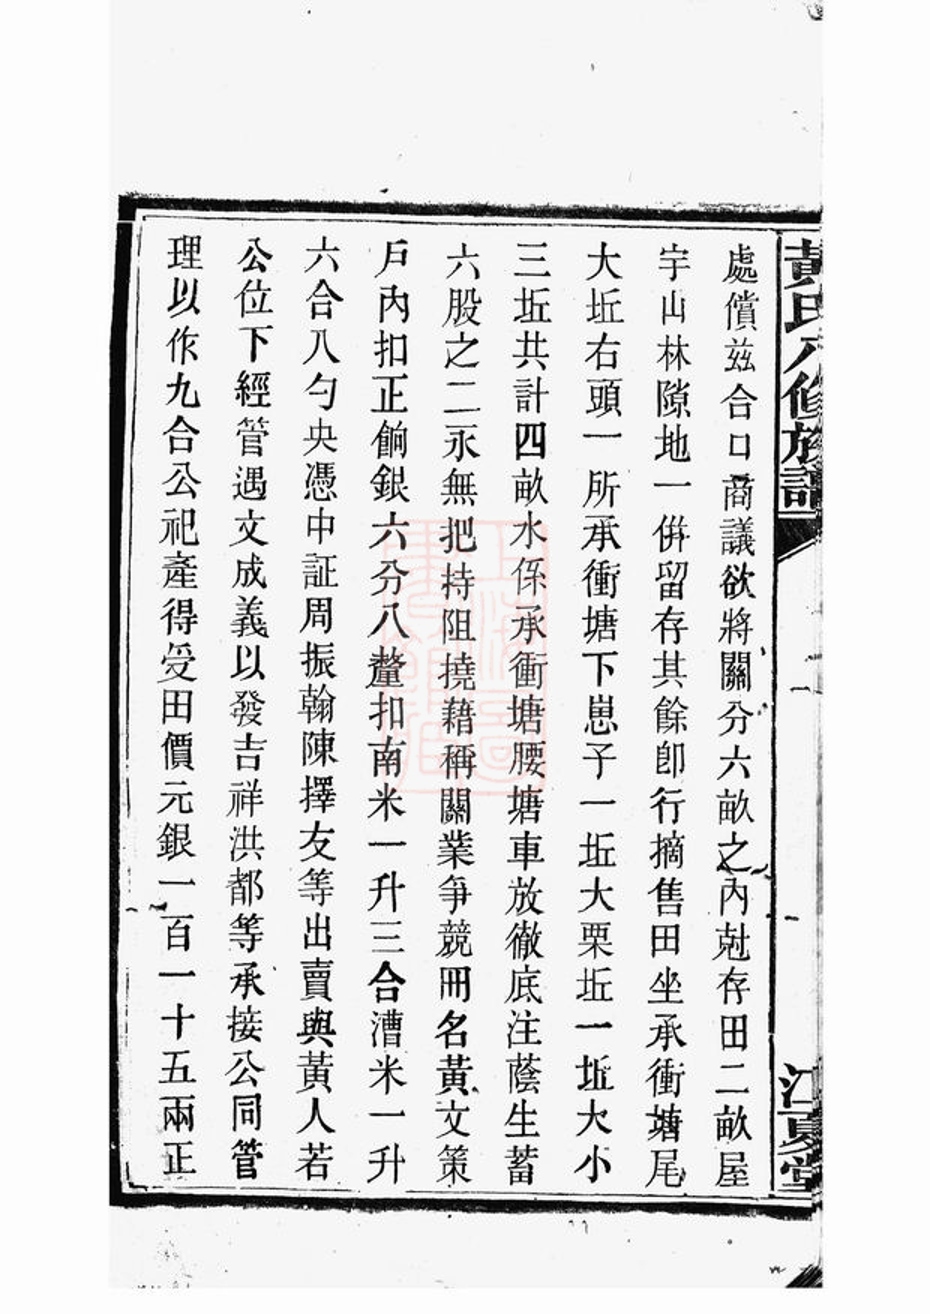 黃氏八修族譜
江夏堂
處償兹合口商議欲將關分六畝之內尅存田二畝屋
宇山林隙地一倂留存其餘卽行摘售田坐承衝塘尾
大坵右頭一所承衝塘下崽子一坵大栗坵一坵大小
三坵共計四畝水係承衝塘腰塘車放徹底注蔭生蓄
六股之二永無把持阻撓藉稱關業爭競冊名黃文策
戶內扣正餉銀六分八釐扣南米一升三合漕米一升
六合八勺央憑中証周振翰陳擇友等出賣與黃人若
公位下經管遇文成義以發吉祥洪都等承接公同管
理以作九合公祀產得受田價元銀一百一十五兩正
上海圖書館藏